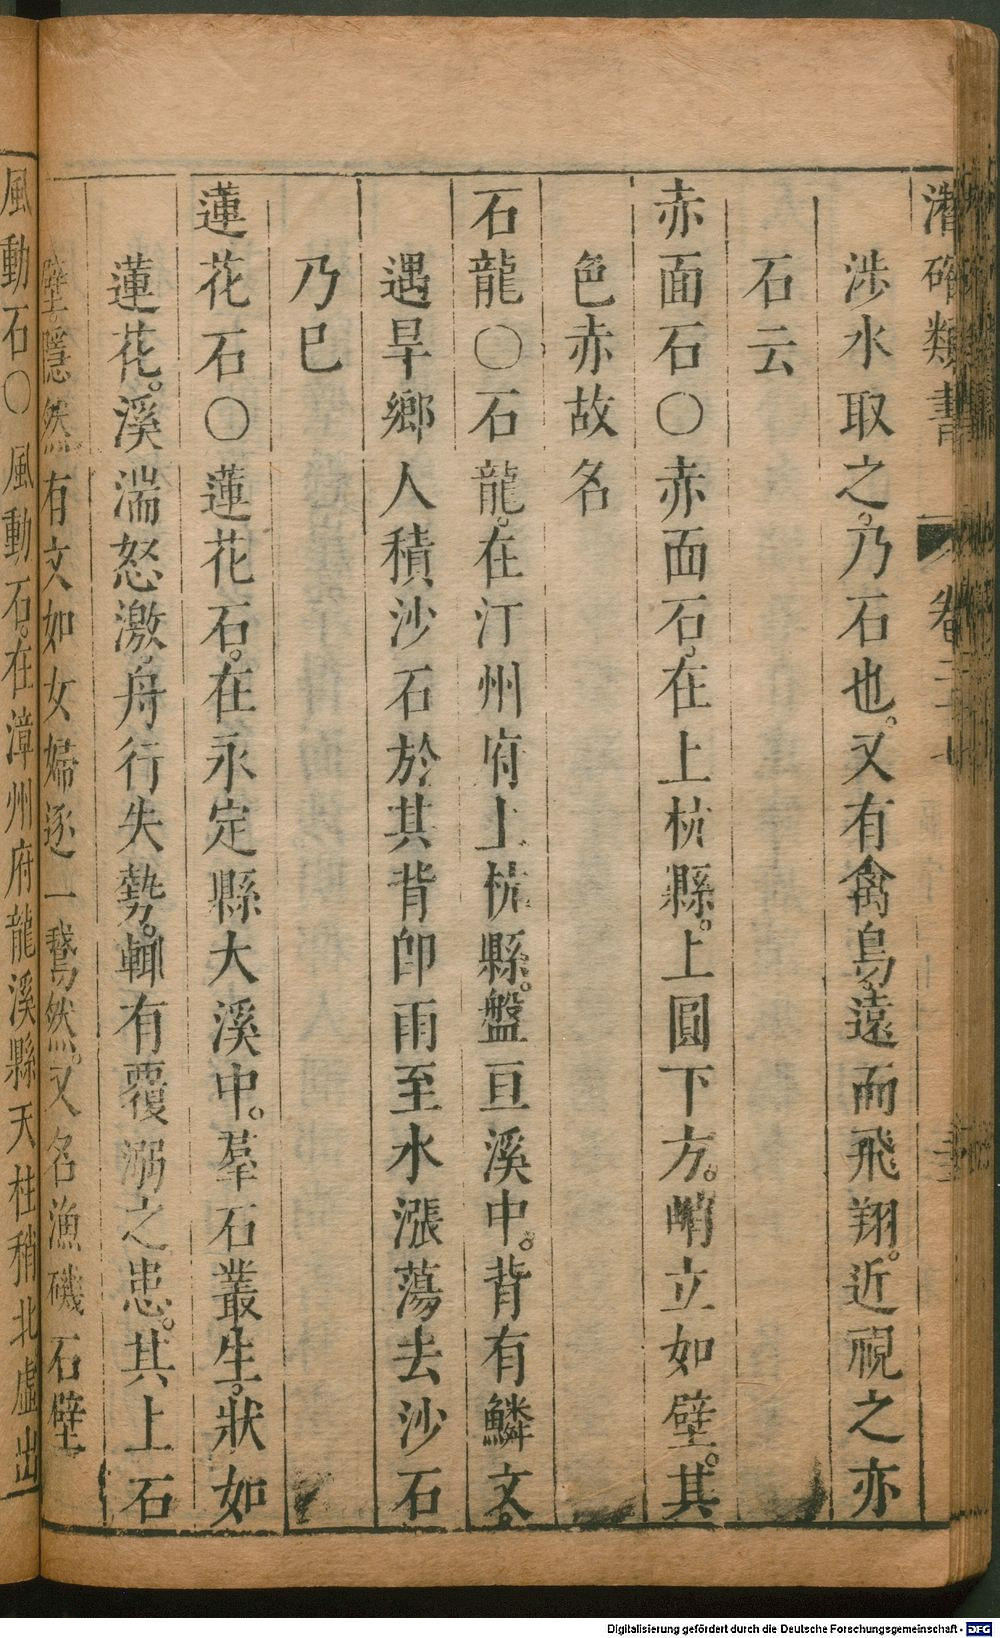 潛確類書 卷三十
涉水取之。乃石也。又有禽鳥。遠而飛翔。近視之亦
石云
赤面石○赤面石。在上杭縣。上圓下方。峭立如壁。其
色赤故名
石龍○石龍。在汀州府上杭縣。盤亘溪中。背有鱗文。
遇旱鄉人積沙石於其背卽雨至水漲蕩去沙石
乃已
蓮花石○蓮花石。在永定縣大溪中。羣石叢生。狀如
蓮花。溪湍怒激。舟行失勢。輒有覆溺之患。其上石
壁。隱然有文如女婦逐一鵞然。又名漁磯石壁
風動石○風動石。在漳州府龍溪縣天柱稍北虛出
Digitalisierung gefördert durch die Deutsche Forschungsgemeinschaft - DFG